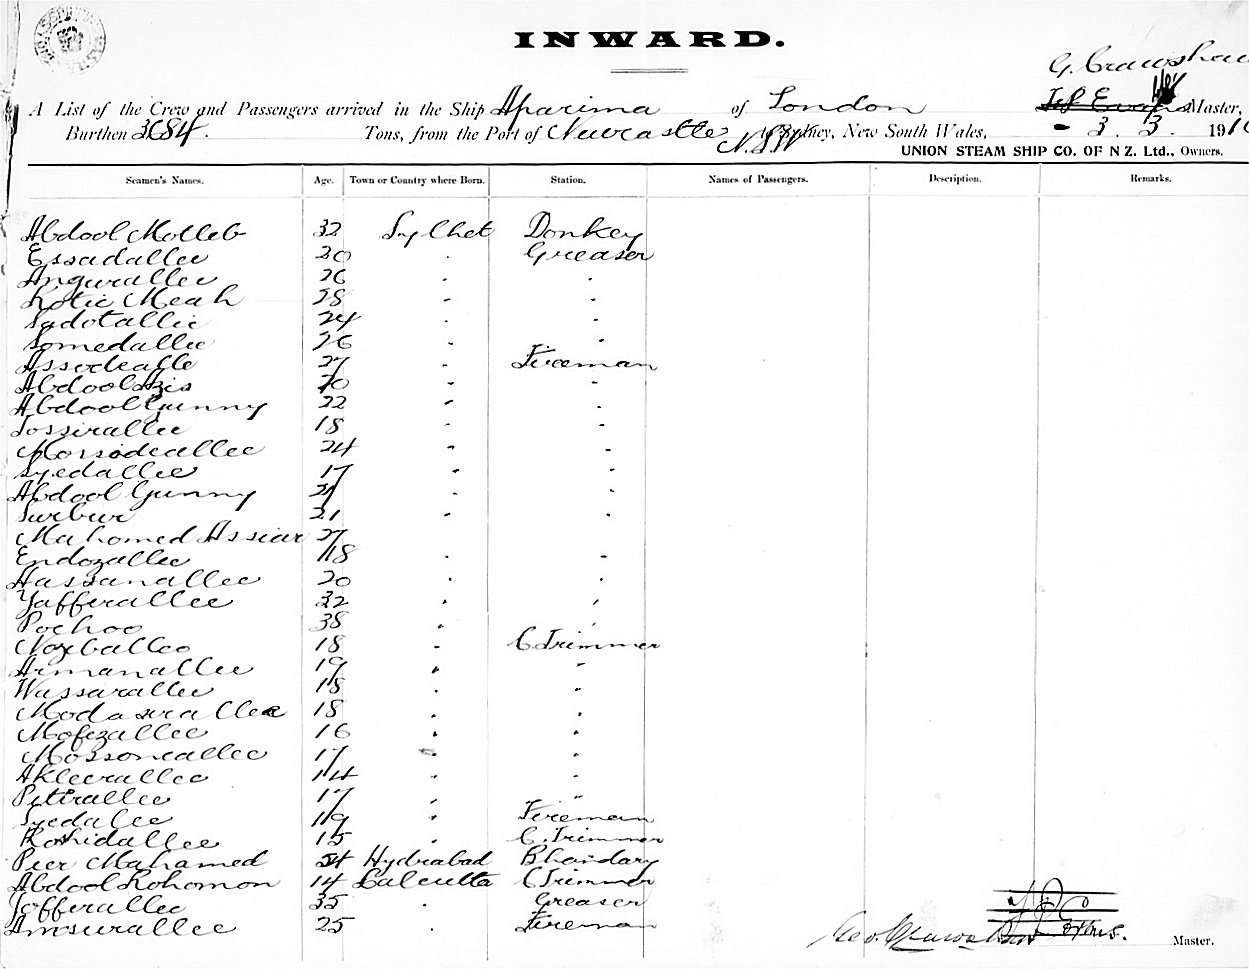 INWARD.
G. Crawshaw
A List of the Crew and Passengers arrived in the Ship Aparima of London Master,
Burthen 3684 Tons, from the Port of Newcastle N.S.W. Sydney, New South Wales, - 3. 3. 191
UNION STEAM SHIP CO. OF N Z. Ltd., Owners.
Seamen's Names. Age. Town or Country where Born. Station. Names of Passengers. Description. Remarks.
Abdool Motleb 32 Sylhet Donkey
Essadallee 30 " Greaser
Angurallee 26 " "
Kotie Meah 28 " "
Sadotallie 24 " "
Somedallee 26 " "
Assodealle 27 " Fireman
Abdool Azis " "
Abdool Gunny 22 " "
Tossirallee 18 " "
Morsodeallee 24 " "
Syedallee 17 " "
Abdool Gunny 21 " "
Surbur 21 " "
Mahomed Assiar 27
Endozallee 18 " "
Hassanallee 20 " "
Yafferallee 32 " "
Pochoo 38 " "
Nozeballee 18 " C. Trimmer
Armanallee 19 " "
Wassarallee 18 " "
Modaserallee 18 " "
Mofezallee 16 " "
Mossoneallee 17 " "
Akleerallee 14 " "
Petirallee 17 " "
Syedalee 19 " Fireman
Roshidallee 15 " C. Trimmer
Peer Mahamed 54 Hydrabad Bhandary
Abdool Rohomon 14 Calcutta C Trimmer
Jofferallee 35 " Greaser
Amsurallee 25 " Fireman
Geo. Crawshaw Master.